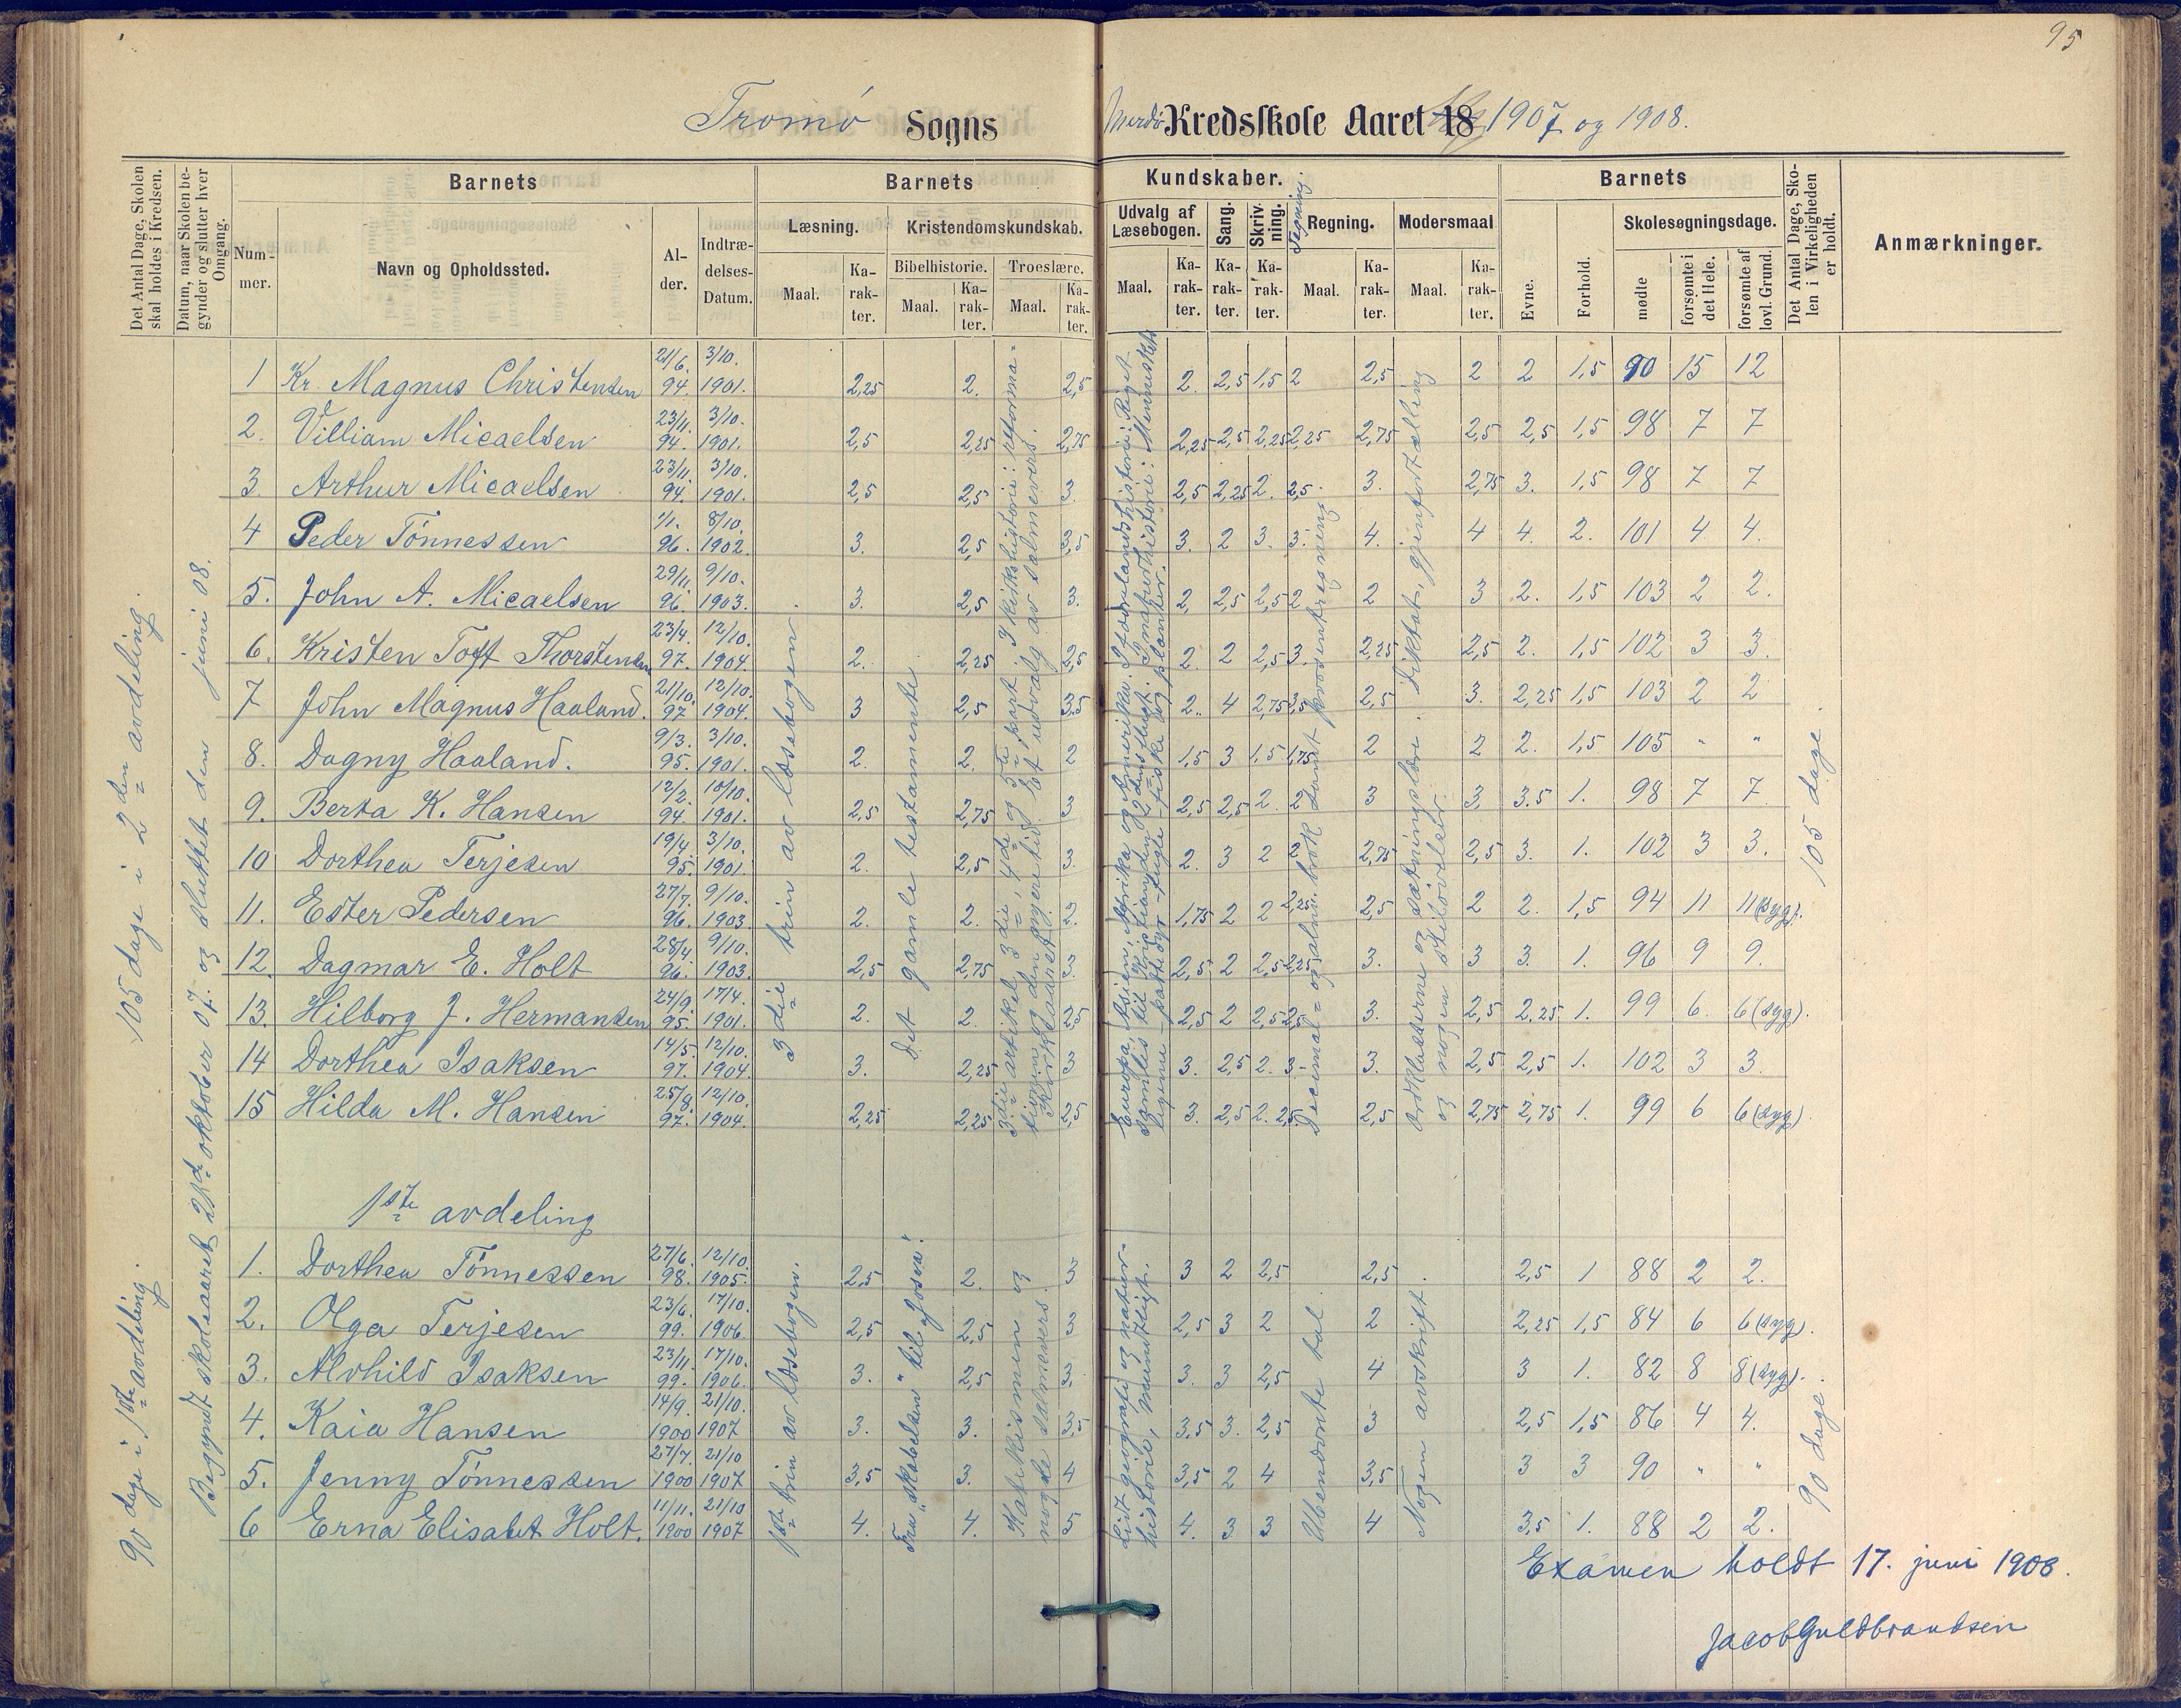 95
Tromø Sogns Merdø Kredsskole Aaret 18 1907 og 1908.
Det Antal Dage, Skolen skal holdes i Kredsen.
Datum, naar Skolen begynder og slutter hver Omgang.
Barnets
Nummer.
Navn og Opholdssted.
Alder.
Indtrædelses-Datum.
Barnets Kundskaber.
Læsning.
Maal.
Karakter.
Kristendomskundskab.
Bibelhistorie.
Maal.
Karakter.
Troeslære.
Maal.
Karakter.
Udvalg af Læsebogen.
Maal.
Karakter.
Sang.
Karakter.
Skrivning.
Karakter.
Tegning.
Regning.
Maal.
Karakter.
Modersmaal
Maal.
Karakter.
Barnets
Evne.
Forhold.
Skolesøgningsdage.
mødte
forsømte i det Hele.
forsømte af lovl. Grund.
Det Antal Dage, Skolen i Virkeligheden er holdt.
Anmærkninger.
105 dage i 2den avdeling.
90 dage i 1ste avdeling.
Begyndt skoleaaret 21de oktober 07. og sluttet den juni 08.
1 Kr. Magnus Christensen 21/6. 94. 3/10. 1901. 2,25 2. 2,5 2. 2,5 1,5 2 2,5 2 2 1,5 90 15 12
2. Villiam Micaelsen 23/11. 94. 3/10. 1901. 2,5 2,25 2,75 2,25 2,5 2,25 2,25 2,75 2,5 2,5 1,5 98 7 7
3. Arthur Micaelsen 23/11. 94. 3/10. 1901. 2,5 2,5 3. 2,5 2,25 2. 2,5. 3. 2,75 3. 1,5 98 7 7
4 Peder Tönnessen 1/1. 96. 8/10. 1902. 3. 2,5 3,5 3. 2 3. 3. 4. 4 4. 2. 101 4 4.
5. John A. Micaelsen 29/11. 96. 9/10. 1903. 3. 2,5 3. 2, 2,5 2,5 2 2 3 2. 1,5 103 2 2.
6. Kristen Toft Thorstensen 23/4. 97. 12/10. 1904. 2. 2,25 2,5 2. 2 2,5 3. 2,25 2,5 2. 1,5 102 3 3.
7 John Magnus Haaland. 21/10. 97 12/10. 1904. 3 2,5 3,5 2. 4 2,75 3,5 2,5 3. 2,25 1,5 103 2 2
8. Dagny Haaland. 9/3. 95. 3/10. 1901. 2. 2. 2 1,5 3 1,5 1,75 2 2 2. 1,5 105 " "
9. Berta K. Hansen 12/2. 94. 10/10. 1901. 2,5 2,75 3 2,5 2,5 2. 2 3 3. 3.5 1. 98 7 7.
10 Dorthea Terjesen 19/4 95. 3/10. 1901. 2. 2,5 3. 2. 3 2 2 2,75 2,5 3. 1. 102 3 3.
11. Ester Pedersen 27/7. 96. 9/10. 1903. 2. 2. 2. 1,75 2 2 2,25 2,5 2 2. 1,5 94 11 11(syg).
12. Dagmar E. Holt 28/4 96. 9/10. 1903. 2,5 2,75 3 2,5 2 2,5 2,25 3. 3 3. 1. 96 9 9.
13. Hilborg J. Hermansen 24/9. 95. 17/4. 1901. 2. 2. 2,5 2,5 2 2,5 2,5 3. 2,5 2,25 1. 99 6. 6(syg).
14 Dorthea Isaksen 14/5. 97. 12/10. 1904. 3. 2,25 3 3. 2,5 2. 3- 3. 2,5 2,5 1. 102 3 3.
15 Hilda M. Hansen 25/8. 97. 12/10. 1904. 2,25 2,25 2,5 3. 2,5 2. 2,5. 2,5 2,75 2,75 1. 99 6 6(syg).
3die trin av læsebogen
Det gamle testamente
3die artikel, 3die, 4de og 5te part. I kirkehistorie: reformationen og den nyere tid. Et udvalg av salmevers. Kirkeaaret.
Europa, Asien, Afrika og Amerika. I fædrelandshistorie: Riget samles til Kristian den 2dens flugt. I naturhistorie: Mennesket, legeme - pattedyr - fugle - fiske og planter.
Decimal= og almin. brøk samt procentregning
Ordklasserne og sætningslære. Diktat, gjenfortælling og nogen stiløvelser.
105 dage.
1ste avdeling
1. Dorthea Tönnessen 27/6. 98. 12/10. 1905. 2,5 2. 3 3 2 2,5 2,5 2,5 1 88 2 2.
2. Olga Terjesen 23/6. 99. 17/10. 1906. 2,5 2,5 3 2,5 3 2 2 2,25 1,5 84 6 6(syg).
3. Alvhild Isaksen 23/11. 99. 17/10. 1906. 3. 2,5 3. 3. 3 2,5 4 3 1. 82 8 8(syg).
4. Kaia Hansen 14/9. 1900 21/10. 1907 3. 3. 3,5 3,5 3. 2,5 3 2,5 1,5 86 4 4.
5. Jenny Tönnessen 27/7. 1900 21/10 1907 3,5 3. 4 3,5 2 4 3,5 3 3 90 " "
6 Erna Elisabet Holt. 11/11. 1900 21/10 1907 4. 4. 5 4. 3 3 4 3,5 1. 88 2 2.
1ste trin av læsebogen.
Fra "skabelsen" til "Josva".
Katekismen og nogle salmevers.
Lidt geografi og naturhistorie, mundtligt.
Ubenævnte tal
Nogen avskrift.
90 dage.
Examen holdt 17. juni 1908.
Jacob Guldbrandsen